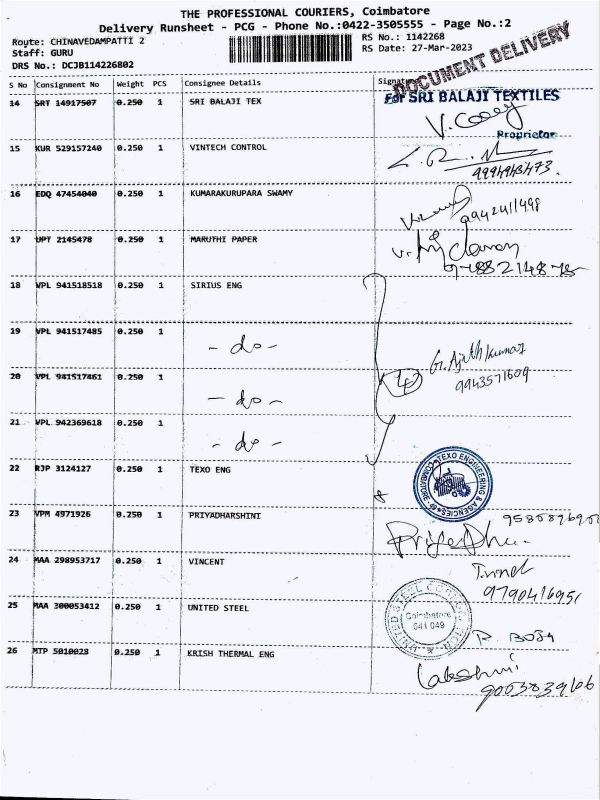 THE PROFESSIONAL COURIERS, Coimbatore
Delivery Runsheet - PCG - Phone No.:0422-3505555 - Page No.:2
Route: CHINAVEDAMPATTI 2
RS No.: 1142268
Staff: GURU
RS Date: 27-Mar-2023
DRS No.: DCJB114226802
DOCUMENT DELIVERY
S No Consignment No Weight PCS Consignee Details Signature
14 SRT 14917507 0.250 1 SRI BALAJI TEX
For SRI BALAJI TEXTILES
Proprietor
15 KUR 529157240 0.250 1 VINTECH CONTROL
16 EDQ 47454040 0.250 1 KUMARAKURUPARA SWAMY
9942411498
17 UPT 2145478 0.250 1 MARUTHI PAPER
18 VPL 941518518 0.250 1 SIRIUS ENG
19 VPL 941517485 0.250 1 - do -
4 G. Ajith kumar
20 VPL 941517461 0.250 1 - do -
9943571609
21 VPL 942369618 0.250 1 - do -
22 RJP 3124127 0.250 1 TEXO ENG
TEXO ENGINEERING & AGENCIES COIMBATORE
23 VPM 4971926 0.250 1 PRIYADHARSHINI
24 MAA 298953717 0.250 1 VINCENT
25 MAA 300053412 0.250 1 UNITED STEEL
Coimbatore
641 049
26 MTP 5010028 0.250 1 KRISH THERMAL ENG
Lakshmi